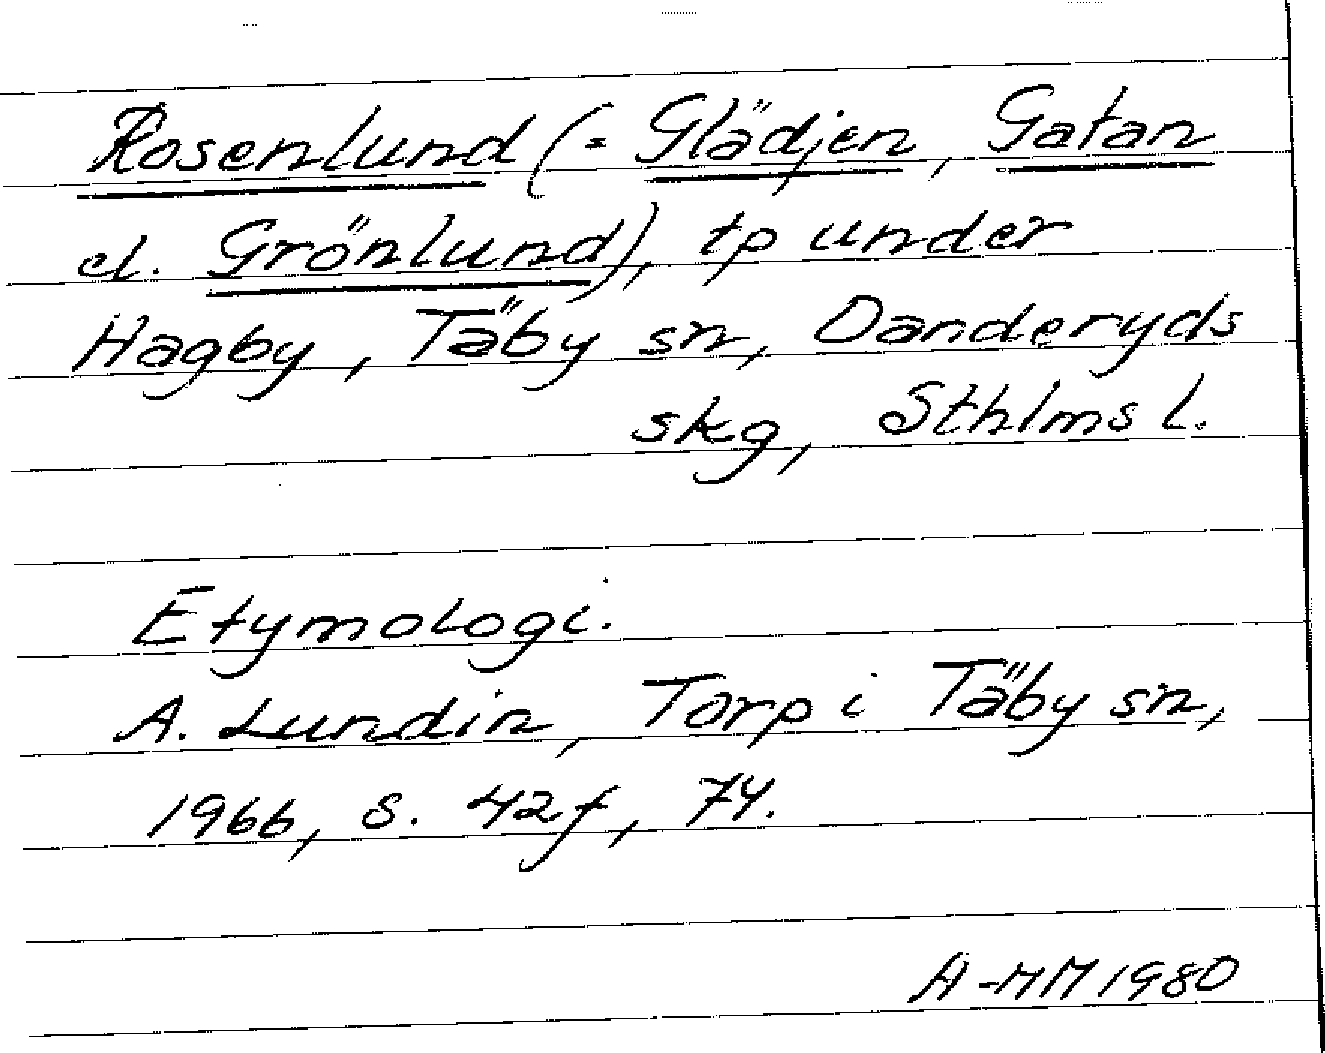 Rosenlund (= Glädjen, Gatan
el. Grönlund), tp under
Hagby, Täby sn, Danderyds
skg, Sthlms l.
Etymologi.
A. Lundin, Torp i Täby sn,
1966, s. 42f, 74.
A-MM 1980